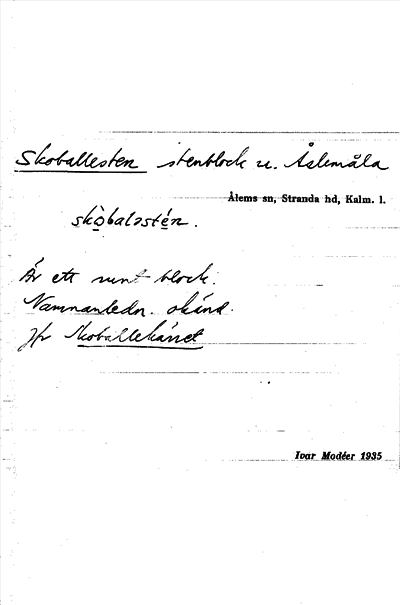 Skoballesten stenblock u. Åslemåla
Ålems sn, Stranda hd, Kalm. l.
skòbaləstén.
Är ett runt block.
Namnanledn. okänd.
Jfr Skoballekärret
Ivar Modéer 1935